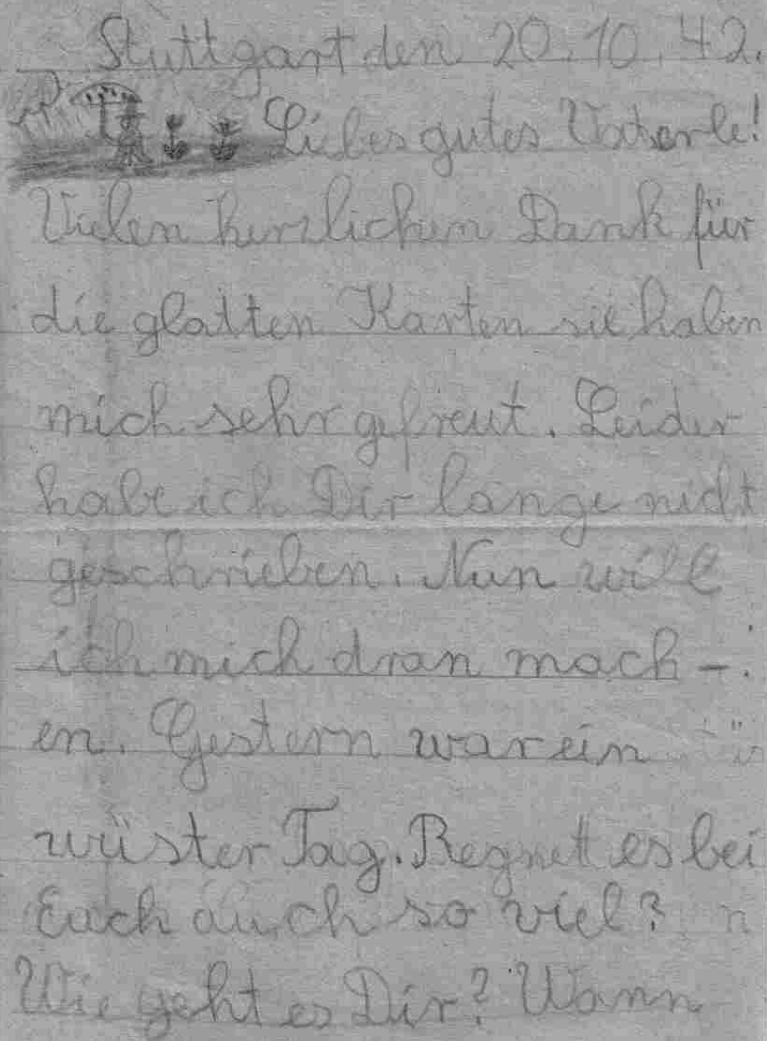 Stuttgart den 20.10.42.
Liebes gutes Vaterle!
Vielen herzlichen Dank für
die glatten Karten sie haben
mich sehr gefreut. Leider
habe ich Dir lange nicht
geschrieben. Nun will
ich mich dran mach-
en. Gestern war ein
wüster Tag. Regnet es bei
Euch auch so viel?
Wie geht es Dir? Wann